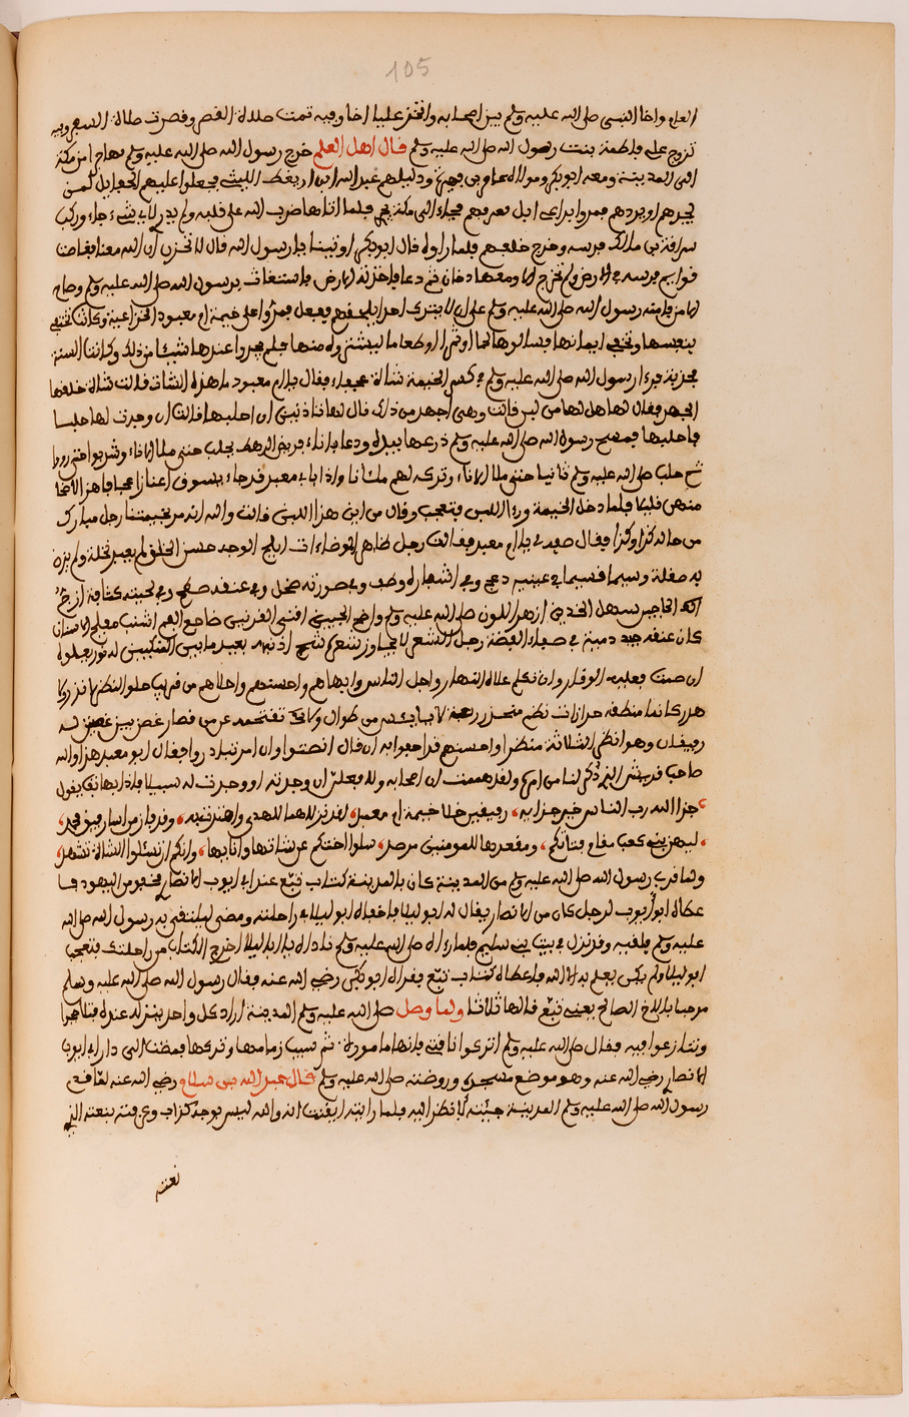 105
العام واخا النبي صلى الله عليه وسلم بين اصحابه واتخذ عليا اخا وفيه تمت صلاة الحضر وقصرت صلاة السفر وفيه
تزوج علي فاطمة بنت رسول الله صلى الله عليه وسلم قال اهل العلم خرج رسول الله صلى الله عليه وسلم مهاجرا من مكة
الى المدينة ومعه ابو بكر ومولاه عامر بن فهيرة ودليلهم عبد الله ابن اريقط الليثي فجعلوا عليهم الجعايل لمن
يخبرهم او يردهم فمروا براعي ابل فعرفهم فجاء الى مكة فلما اتاها ضرب الله على قلبه ولم يدر لاي شيء جاء وركب
سراقة بن مالك فرسه وخرج خلفهم فلما راوه قال ابو بكر اوتينا يا رسول الله قال لا تحزن ان الله معنا فغاصت
قوايم فرسه في الارض ولم تخرج الا ومعها دخان ثم دعا فاخذته الارض فاستغاث برسول الله صلى الله عليه وسلم وصاح
الامان فامنه رسول الله صلى الله عليه وسلم على ان لا يترك احدا يلحقهم ففعل فمروا على خيمة ام معبود الخزاعية وكانت تختفي
بنفسها وتخفي ايمانها فسالوها لحما او تمرا او طعاما ليشتروه منها فلم يجدوا عندها شيئا من ذلك وكانت السنة
مجدبة فرءا رسول الله صلى الله عليه وسلم في كسر الخيمة شاة عجفاء فقال يا ام معبود ما هذه الشات قالت شاة خلفها
الجهد فقال لها هل لها من لبن قالت وهي اجهد من ذلك قال لها تاذنيني ان احلبها قالت ان وجدت لها حلبا
فاحلبها فمسح رسول الله صلى الله عليه وسلم ذرعها بيده ودعا باناء يربض الرهط فحلب حتى ملا الاناء وشربوا حتى رووا
ثم حلب صلى الله عليه وسلم ثانيا حتى ملا الاناء وتركه لهم ملئانا واذا بابي معبد قد جاء يسوق اعنازا عجافا
منهن قليلا فلما دخل الخيمة ورءا اللبن فتعجب وقال من اين هذا اللبن قالت والله انه مر بخيمتنا رجل مبارك
من حاله كذا وكذا فقال صفيه لي يا ام معبد فقالت رجل ظاهر الوضاءات ابلج الوجه حسن الخلق لم يعبه ثجلة ولم يزر
به صقلة وسيما قسيما في عينيه دعج وفي اشفاره وطف وفي صوته صحل وفي عنقه صطع وفي لحيته كثافة ازج
الحاجبين سهل الخدين ازهر اللون صلى الله عليه وسلم واضح الجبين اقنى العرنين ضليع الفم اشنب مفلج الاسنان
كان عنقه جيد دمية في صفاء الفضة رجل الشعر لا يجاوز شعره شحمة اذنيه بعيد ما بين المنكبين له نور يعلوه
ان صمت فعليه الوقار وان تكلم علاه البهاء واجل الناس وابهاهم واحسنهم واحلاهم من قريب حلو المنطق لا نزر ولا
هدر كانما منطقه خرازات نظم منحدر ربعة لا بائن من طوال ولا تقتحمه عين من قصار غصن بين غصنين له
رفيقان وهو انظر الثلاثة منظرا واحسنهم قدا محفوا به ان قال انصتوا وان امر تبادروا فقال ابو معبد هذا والله
صاحب قريش الذي ذكر لنا من امره ولقد هممت ان اصحابه ولافعلن ان وجدته او وجدت له سبيلا فاذا بهاتف يقول
جزا الله رب الناس خير جزايه، رفيقين حلا خيمة ام معبد، لقد نزلا هما للهدى واهتدت به، وقد فاز من امسا رفيق محمد
، ليهن بني كعب مقام فتاتكم، ومقعدها للمومنين مرصد، سلوا اختكم عن شاتها وانايها، وانكم ان تسئلوا الشاة تشهد
ولما قرب رسول الله صلى الله عليه وسلم من المدينة كان بالمدينة كتاب تبع عند ابي ايوب الانصاري
عطاه ابو ايوب لرجل كان من الانصار يقال له ابو ليلا فاخفاه ابو ليلا في راحلته ومضى ليلتقي به رسول الله صلى الله
عليه وسلم فلقيه وقد نزل في بيت بني سليم فلما رءاه صلى الله عليه وسلم ناداه يا ابا ليلا اخرج الكتاب من راحلتك فتعجب
ابو ليلا ولم يكن يعلم به الا الله فاعطاه كتاب تبع فقراه ابو بكر رضي الله عنه فقال رسول الله صلى الله عليه وسلم
مرحبا بالاخ الصالح يعني تبع قالها ثلاثا ولما وصل صلى الله عليه وسلم المدينة اراد كل واحد ينزله عنده
وتنازعوا فيه فقال صلى الله عليه وسلم اتركوا ناقتي فانها مامورة، ثم سيب زمامها وتركها فمضت الى دار ابي ايوب
الانصار رضي الله عنه وهو موضع مسجده وروضته صلى الله عليه وسلم قال عبد الله بن سلام رضي الله عنه لما قدم
رسول الله صلى الله عليه وسلم المدينة جيته لانظر اليه فلما رايته ايقنت انه والله ليس بوجه كذاب وعرفته بنعته الذي
نعته